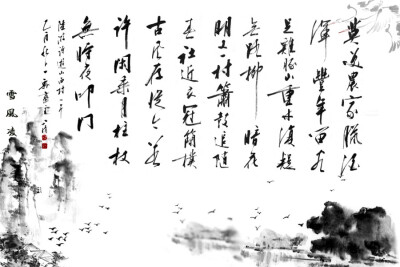 莫笑農家臘酒
渾豐年留客
足雞豚山重水復疑
無路柳暗花
明又一村簫鼓追隨
春社近衣冠簡樸
古風存從今若
許閑乘月拄杖
無時夜叩門
陸游詩遊山西村一首
雪風